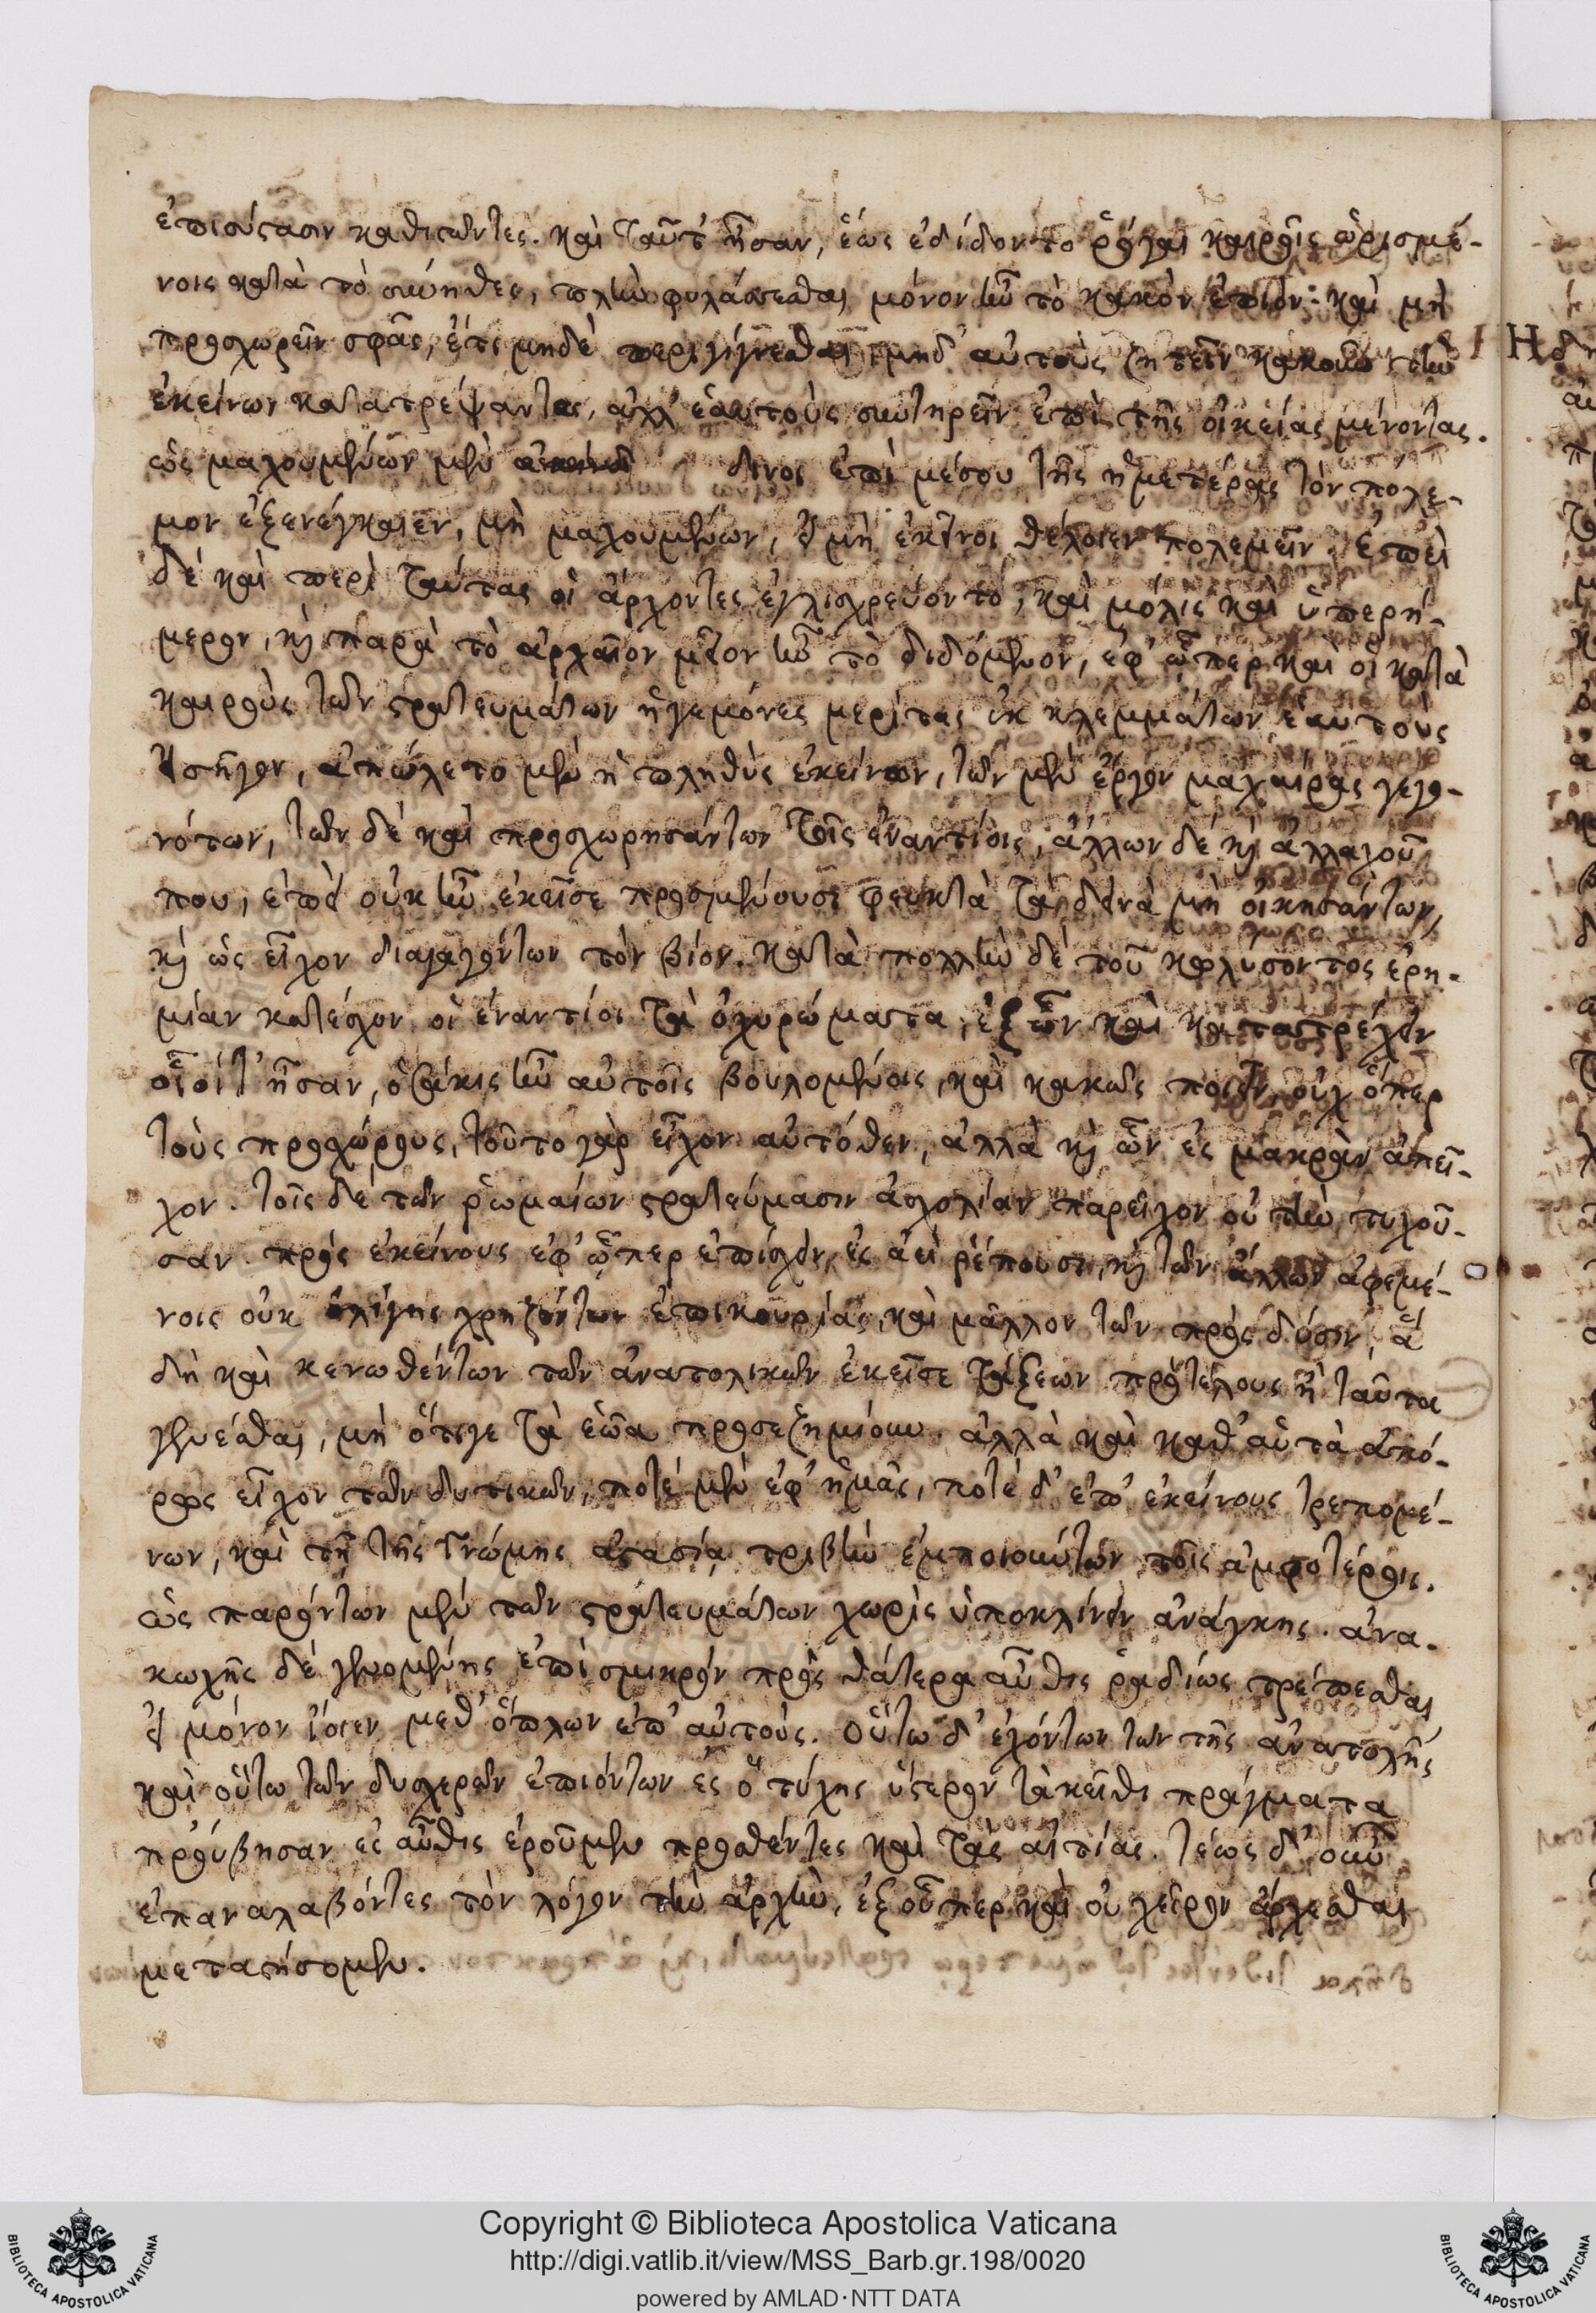 ἐπισύστασιν καθιστῶντες. καὶ ταῦτ' ἦσαν, ἕως ἐδίδοντο ῥόγαι καιροῖς ὡρισμέ-
νοις κατὰ τὸ σύνηθες, πλὴν φυλάσσεσθαι μόνον ἦν τὸ κακὸν ἐπιόν· καὶ μὴ
προσχωρεῖν σφᾶς, ἔτι μηδὲ περιγίγνεσθαι μηδ' αὐτοὺς ζητεῖν κακοῦν τὴν
ἐκείνων κατατρέψαντας, ἀλλ' ἑαυτοὺς συντηρεῖν ἐπὶ τῆς οἰκείας μένοντας.
ὡς μαχουμένων μὲν δεινοὶ ἐπὶ μέσου τῆς ἡμετέρας τὸν πόλε-
μον ἐξενέγκαιεν, μὴ μαχουμένων, εἰ μὴ ἐκεῖνοι θέλοιεν πολεμεῖν. ἐπεὶ
δὲ καὶ περὶ ταύτας οἱ ἄρχοντες ἐγλισχρεύοντο, καὶ μόλις καὶ ὑπερή-
μερον, καὶ παρὰ τὸ ἀρχαῖον μεῖον ἦν τὸ διδόμενον, ἐφ' ᾧπερ καὶ οἱ κατὰ
καιροὺς τῶν στρατευμάτων ἡγεμόνες μερίτας ἐκ κλεμμάτων ἑαυτοὺς
εἰσῆγον, ἀπώλετο μὲν ἡ πληθὺς ἐκείνων, τῶν μὲν ἔργον μαχαίρας γεγο-
νότων, τῶν δὲ καὶ προσχωρησάντων τοῖς ἐναντίοις, ἄλλων δὲ καὶ ἀλλαχοῦ
που, ἐπεὶ οὐκ ἦν ἐκεῖσε προσμένουσι φευκτὰ τὰ δεινὰ μὴ οἰκησάντων,
καὶ ὡς εἶχον διαγαγόντων τὸν βίον. κατὰ πολλὴν δὲ τοῦ κωλύσοντος ἐρη-
μίαν κατέσχον οἱ ἐναντίοι τὰ ὀχυρώματα, ἐξ ὧν καὶ κατατρέχειν
οἷοί τ' ἦσαν, ὁσάκις ἦν αὐτοῖς βουλομένοις, καὶ κακῶς ποιεῖν, οὐχ ὅπερ
τοὺς προσχώρους, τοῦτο γὰρ εἶχον αὐτόθεν, ἀλλὰ καὶ ὧν ἐς μακρὰν ἀπεῖ-
χον. τοῖς δὲ τῶν ῥωμαίων στρατεύμασιν ἀσχολίαν παρεῖχον οὐ τὴν τυχοῦ-
σαν πρὸς ἐκείνους ἐφ' ᾧπερ ἐπίσχειν ἐς ἀεὶ ῥέπουσι, καὶ τῶν ἄλλων ἀφεμέ-
νοις οὐκ ὀλίγης χρῃζόντων ἐπικουρίας, καὶ μᾶλλον τῶν πρὸς δύσιν, ἃ
δὴ καὶ κενωθέντων τῶν ἀνατολικῶν ἐκεῖσε τάξεων πρὸ τέλους ἢ ταῦτα
γενέσθαι, μὴ ὅτιγε τὰ ἑῷα προσεζημίουν. ἀλλὰ καὶ καθ' αὑτὰ ἀπό-
ρως εἶχον τῶν δυτικῶν, ποτὲ μὲν ἐφ' ἡμᾶς, ποτὲ δ' ἐπ' ἐκείνους τρεπομέ-
νων, καὶ τῇ τῆς γνώμης ἀστασίᾳ τριβὴν ἐμποιούντων τοῖς ἀμφοτέροις.
ὡς παρόντων μὲν τῶν στρατευμάτων χωρὶς ὑποκλίνειν ἀνάγκης. ἀνα-
κωχῆς δὲ γενομένης ἐπὶ σμικρὸν πρὸς θάτερα αὖθις ῥᾳδίως τρέπεσθαι
εἰ μόνον ἴοιεν μεθ' ὅπλων ἐπ' αὐτούς. Οὕτω δ' ἐχόντων τῶν τῆς ἀνατολῆς
καὶ οὕτω τῶν δυσχερῶν ἐπιόντων ἐς ὃ τύχης ὕστερον τἀκεῖθι πράγματα
προύβησαν εἰς αὖθις ἐροῦμεν προσθέντες καὶ τὰς αἰτίας. τέως δ' οὖν
ἐπαναλαβόντες τὸν λόγον τὴν ἀρχὴν, ἐξ οὗπερ καὶ οὐ χεῖρον ἄρχεσθαι
μεταστήσομεν.
Copyright © Biblioteca Apostolica Vaticana
http://digi.vatlib.it/view/MSS_Barb.gr.198/0020
powered by AMLAD·NTT DATA
BIBLIOTECA APOSTOLICA VATICANA
BIBLIOTECA APOSTOLICA VATICANA